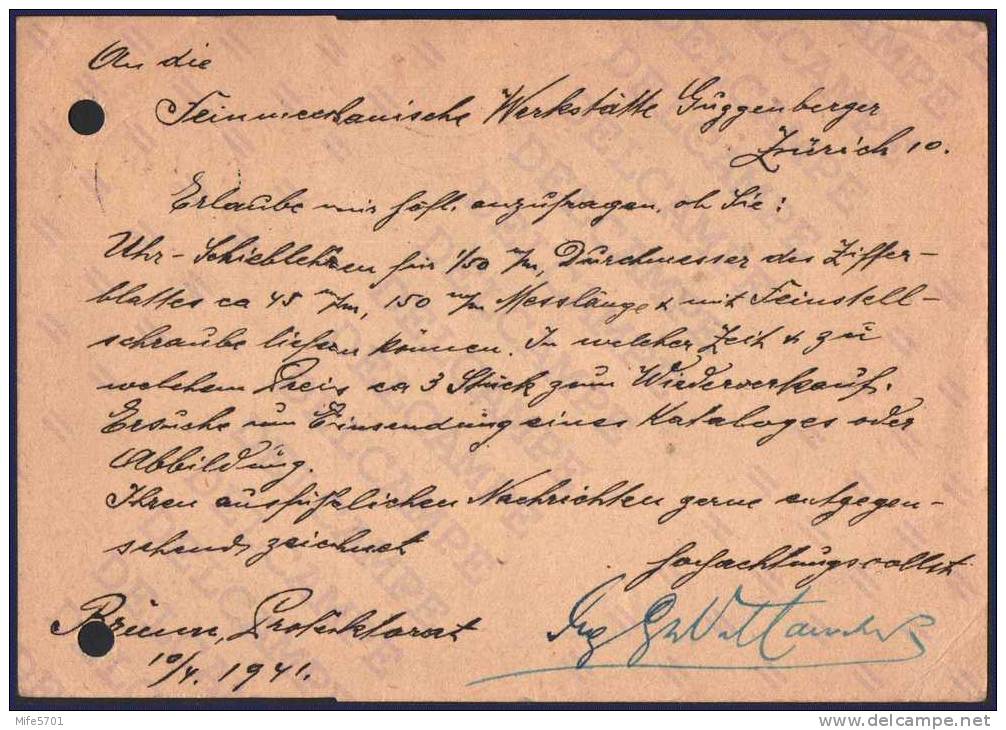 An die
Feinmechanische Werkstätte Guggenberger
Zürich 10.
Erlaube mir höfl. anzufragen, ob Sie:
Uhr-Schieblehren für 1/50 m/m, Durchmesser des Ziffer-
blattes ca 45 m/m, 150 m/m Messlänge & mit Feinstell-
schraube liefern können. In welcher Zeit & zu
welchem Preis ca 3 Stück zum Wiederverkauf.
Ersuche um Einsendung eines Kataloges oder
Abbildung.
Ihren ausführlichen Nachrichten gerne entgegen-
sehend, zeichnet
hochachtungsvollst
Brünn, Protektorat
10/4. 1941.
Ing
Mife5701
www.delcampe.net
DELCAMPE